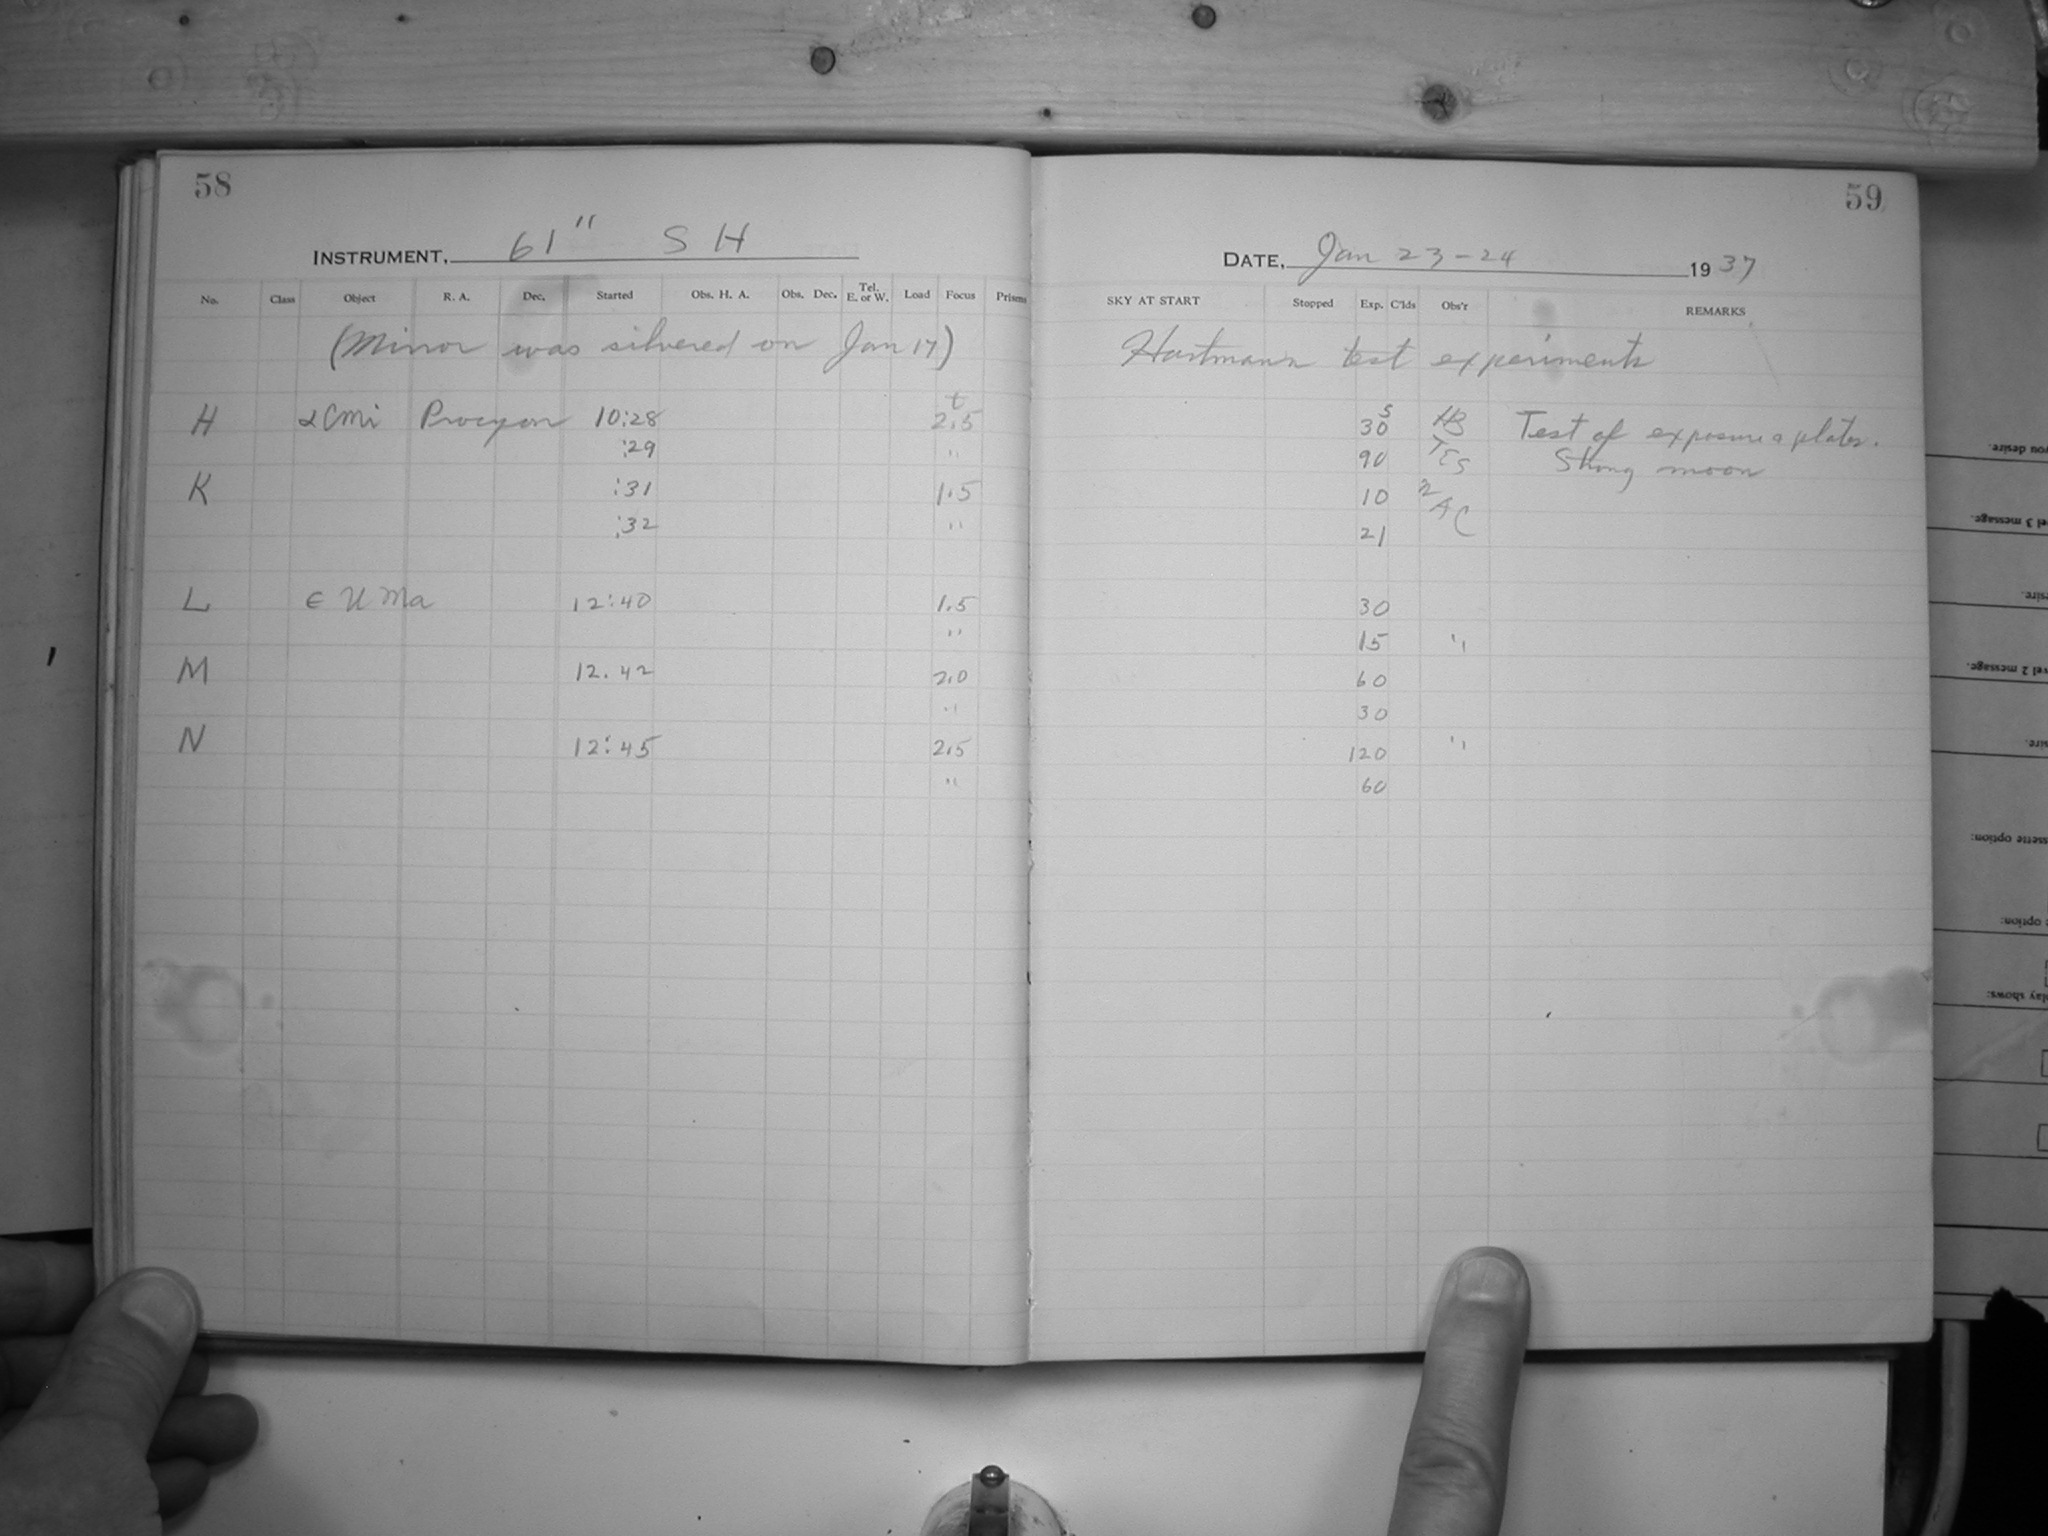 58
INSTRUMENT, 61" S H
No. Class Object R. A. Dec. Started Obs. H. A. Obs. Dec. Tel. E. or W. Load Focus Prisms
(Mirror was silvered on Jan 17)
H α CMi Procyon 10:28 2.5 t
:29 "
K :31 1.5
:32 "
L ε U Ma 12:40 1.5
"
M 12.42 2.0
"
N 12:45 2.5
"
59
DATE, Jan 23-24 1937
SKY AT START Stopped Exp. C'lds Obs'r REMARKS
Hartmann test experiments
30 s HB Test of exposure & plates.
90 TES Strong moon
10
21
30
15 "
60
30
120 "
60
you desire.
vel 3 message.
sire.
vel 2 message.
sire.
ssette option:
option:
play shows: